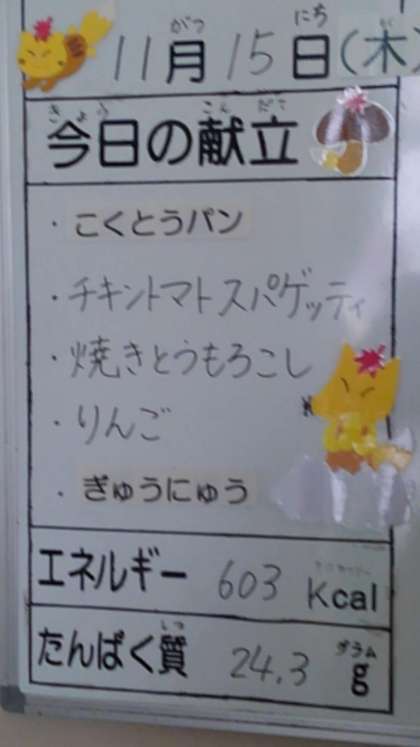 11月15日(木)
がつ にち
今日の献立
きょう こんだて
・こくとうパン
・チキントマトスパゲッティ
・焼きとうもろこし
・りんご
・ぎゅうにゅう
エネルギー 603 Kcal
たんぱく質 24.3 g
しつ グラム